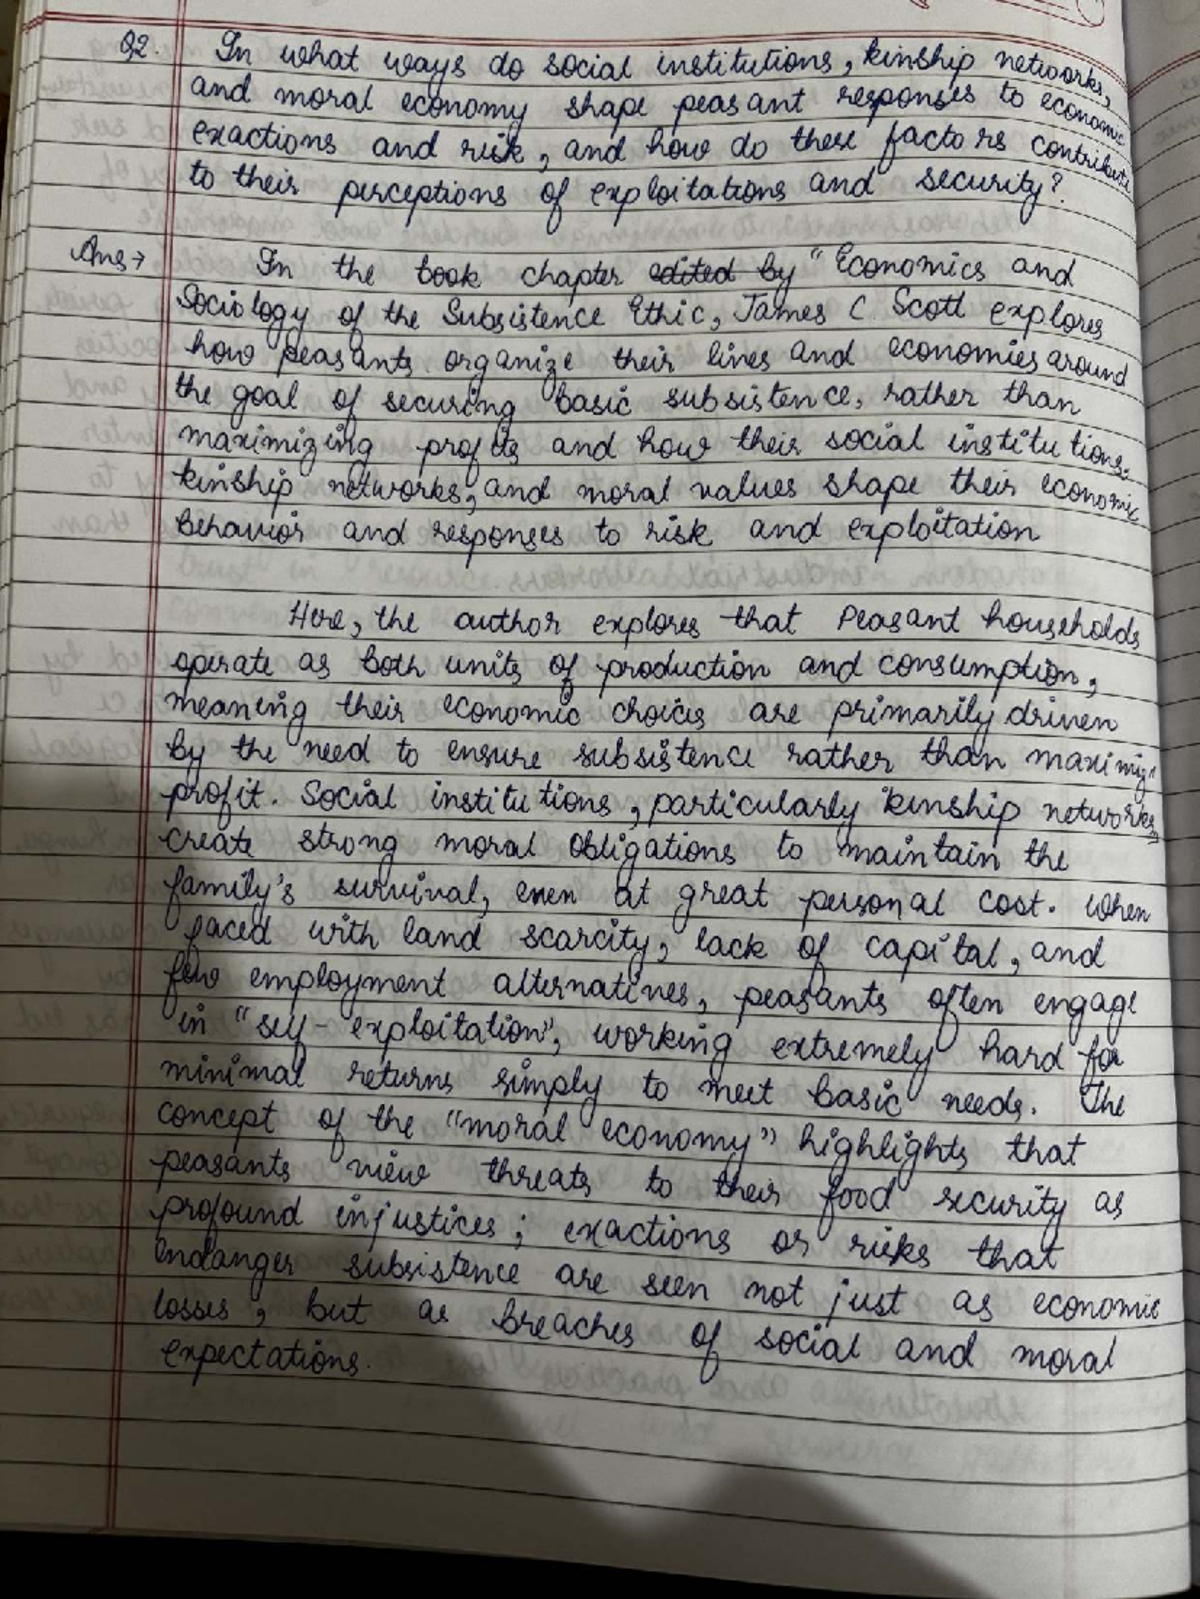 Q2. In what ways do social institutions, kinship networks,
and moral economy shape peasant responses to economic
exactions and risk, and how do these factors contribute
to their perceptions of exploitations and security?
Ans→ In the book chapter edited by "Economics and
Sociology of the Subsistence Ethic, James C. Scott explores
how peasants organize their lines and economies around
the goal of securing basic subsistence, rather than
maximizing profits and how their social institutions,
kinship networks, and moral values shape their economic
behavior and responses to risk and exploitation
Here, the author explores that Peasant households
operate as both units of production and consumption,
meaning their economic choices are primarily driven
by the need to ensure subsistence rather than maximiz
profit. Social institutions, particularly kinship networks,
create strong moral obligations to maintain the
family's survival, even at great personal cost. When
faced with land scarcity, lack of capital, and
few employment alternatives, peasants often engage
in "self-exploitation", working extremely hard for
minimal returns simply to meet basic needs. The
concept of the "moral economy" highlights that
peasants view threats to their food security as
profound injustices; exactions or risks that
endanger subsistence are seen not just as economic
losses, but as breaches of social and moral
expectations.